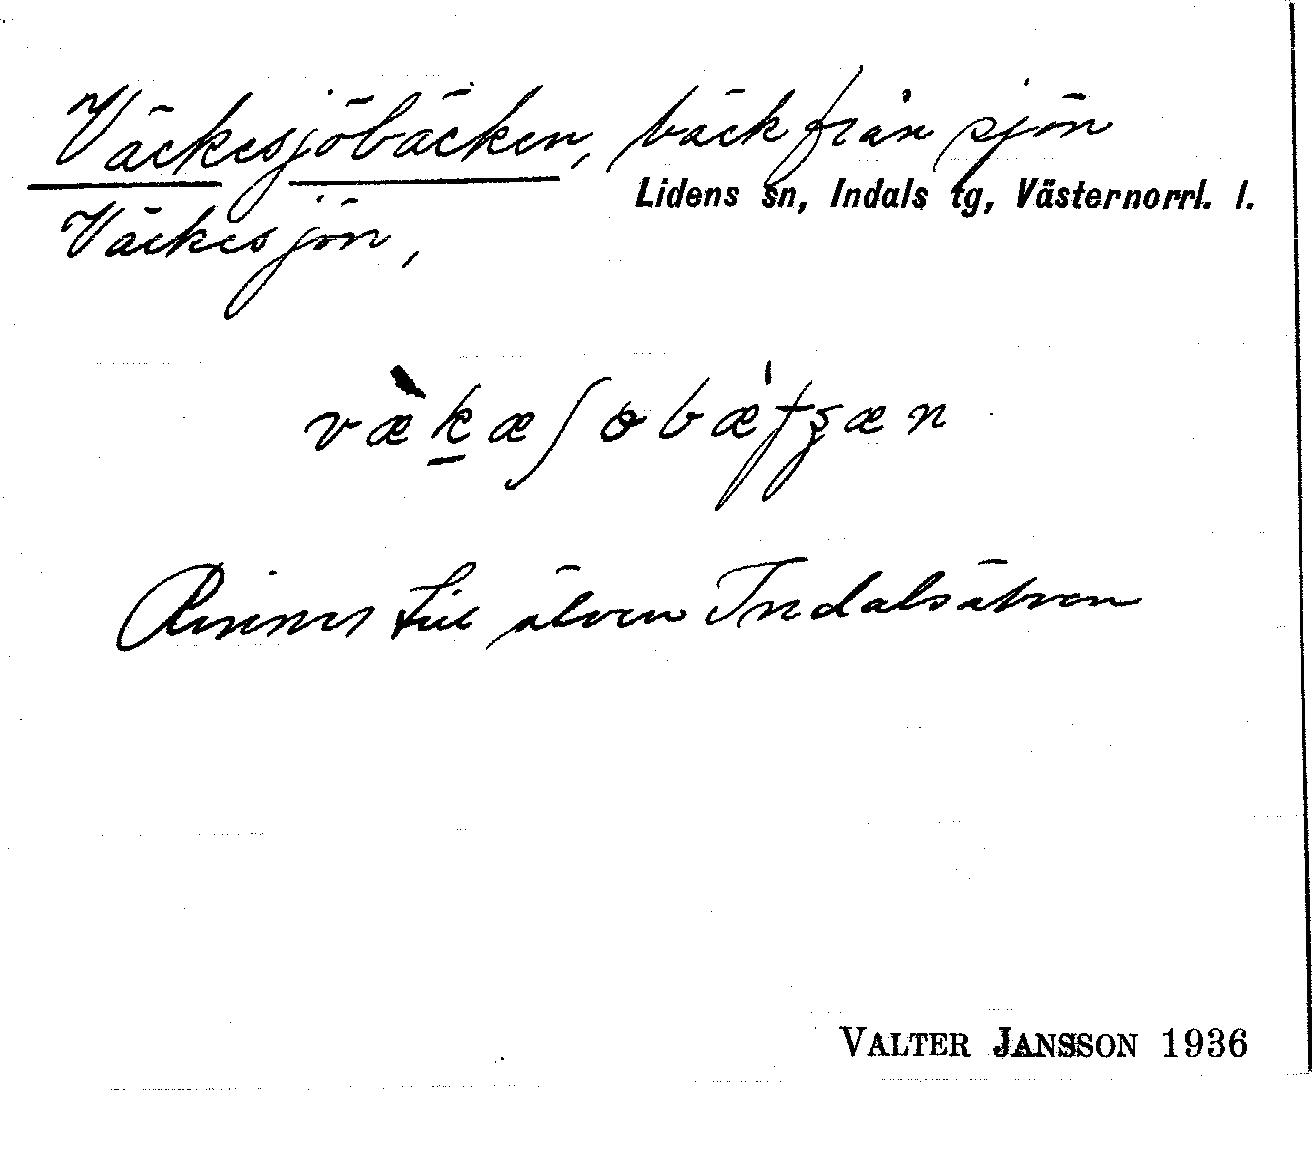 Väckesjöbäcken, bäck från sjön
Lidens sn, Indals tg, Västernorrl. l.
Väckesjön,
væ̀k̠æʃɵbǽtʒæn
Rinner till älven Indalsälven
VALTER JANSSON 1936